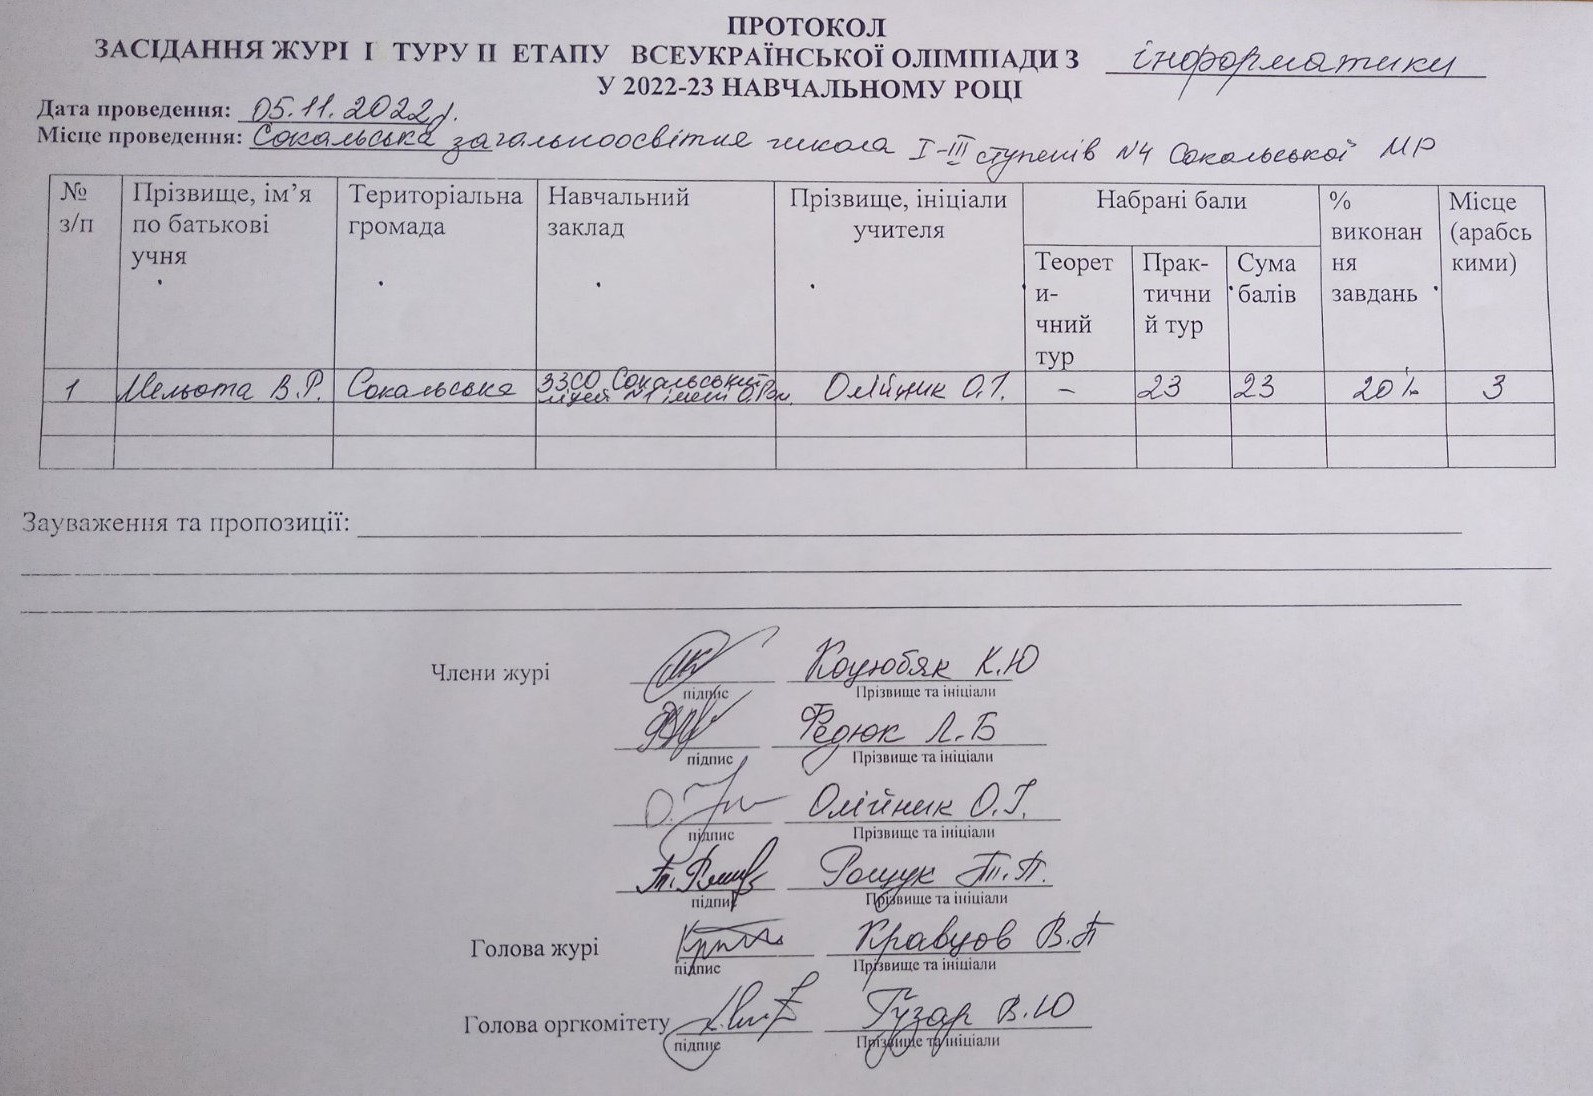 ПРОТОКОЛ
ЗАСІДАННЯ ЖУРІ І ТУРУ ІІ ЕТАПУ ВСЕУКРАЇНСЬКОЇ ОЛІМПІАДИ З інформатики
У 2022-23 НАВЧАЛЬНОМУ РОЦІ
Дата проведення: 05.11.2022р.
Місце проведення: Сокальська загальноосвітня школа І-ІІІ ступенів №4 Сокальської МР
№ з/п
Прізвище, ім’я по батькові учня
Територіальна громада
Навчальний заклад
Прізвище, ініціали учителя
Набрані бали
Теорети-чний тур
Прак-тичний тур
Сума балів
% виконання завдань
Місце (арабськими)
1 Мельота В.Р. Сокальська ЗЗСО Сокальський Олійник О.І. – 23 23 20% 3
ліцей №1 імені О.
Зауваження та пропозиції:
Члени журі Коцюбяк К.Ю
підпис Прізвище та ініціали
Федюк Л.Б
підпис Прізвище та ініціали
Олійник О.І.
підпис Прізвище та ініціали
Рощук Т.П.
підпис Прізвище та ініціали
Голова журі Кравцов В.П
підпис Прізвище та ініціали
Голова оргкомітету Гузар В.Ю
підпис Прізвище та ініціали